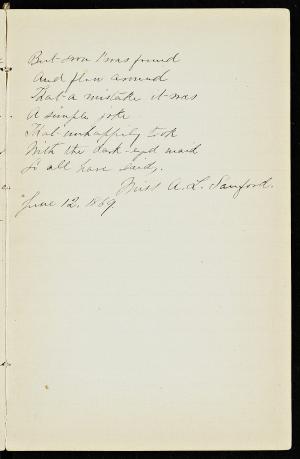 But soon 'twas found
And flew around
That a mistake it was
A simple joke
That unhappily took
With the dark-eyed maid
So all have said,
Miss A. L. Sanford.
June 12, 1869.